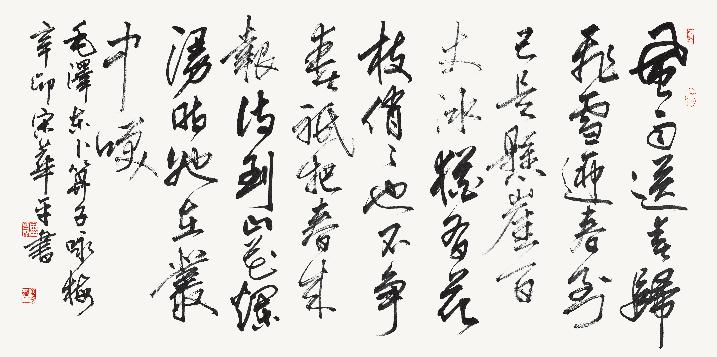 風雨送春歸
飛雪迎春到
已是懸崖百
丈冰猶有花
枝俏〻也不争
春祇把春来
報待到山花爛
漫時她在叢
中咲
毛澤东卜算子咏梅
辛卯宋華平書